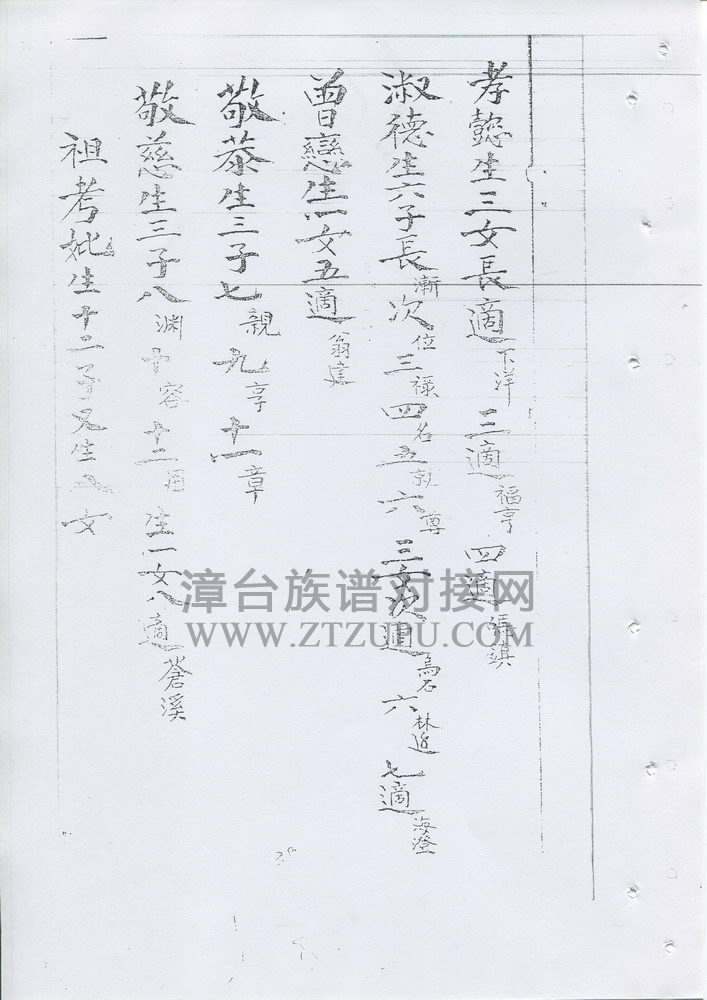 孝懿生三女長適下洋三適福亭四適
淑德生六子長漸次位三祿四名五就六尊三女次適烏石六林邊七適海澄
曾戀生一女五適翁
敬恭生三子七親九享十一章
敬慈生三子八淵十容十二用生一女八適蒼溪
祖考妣生十二子又生女
漳台族谱对接网
WWW.ZTZUPU.COM